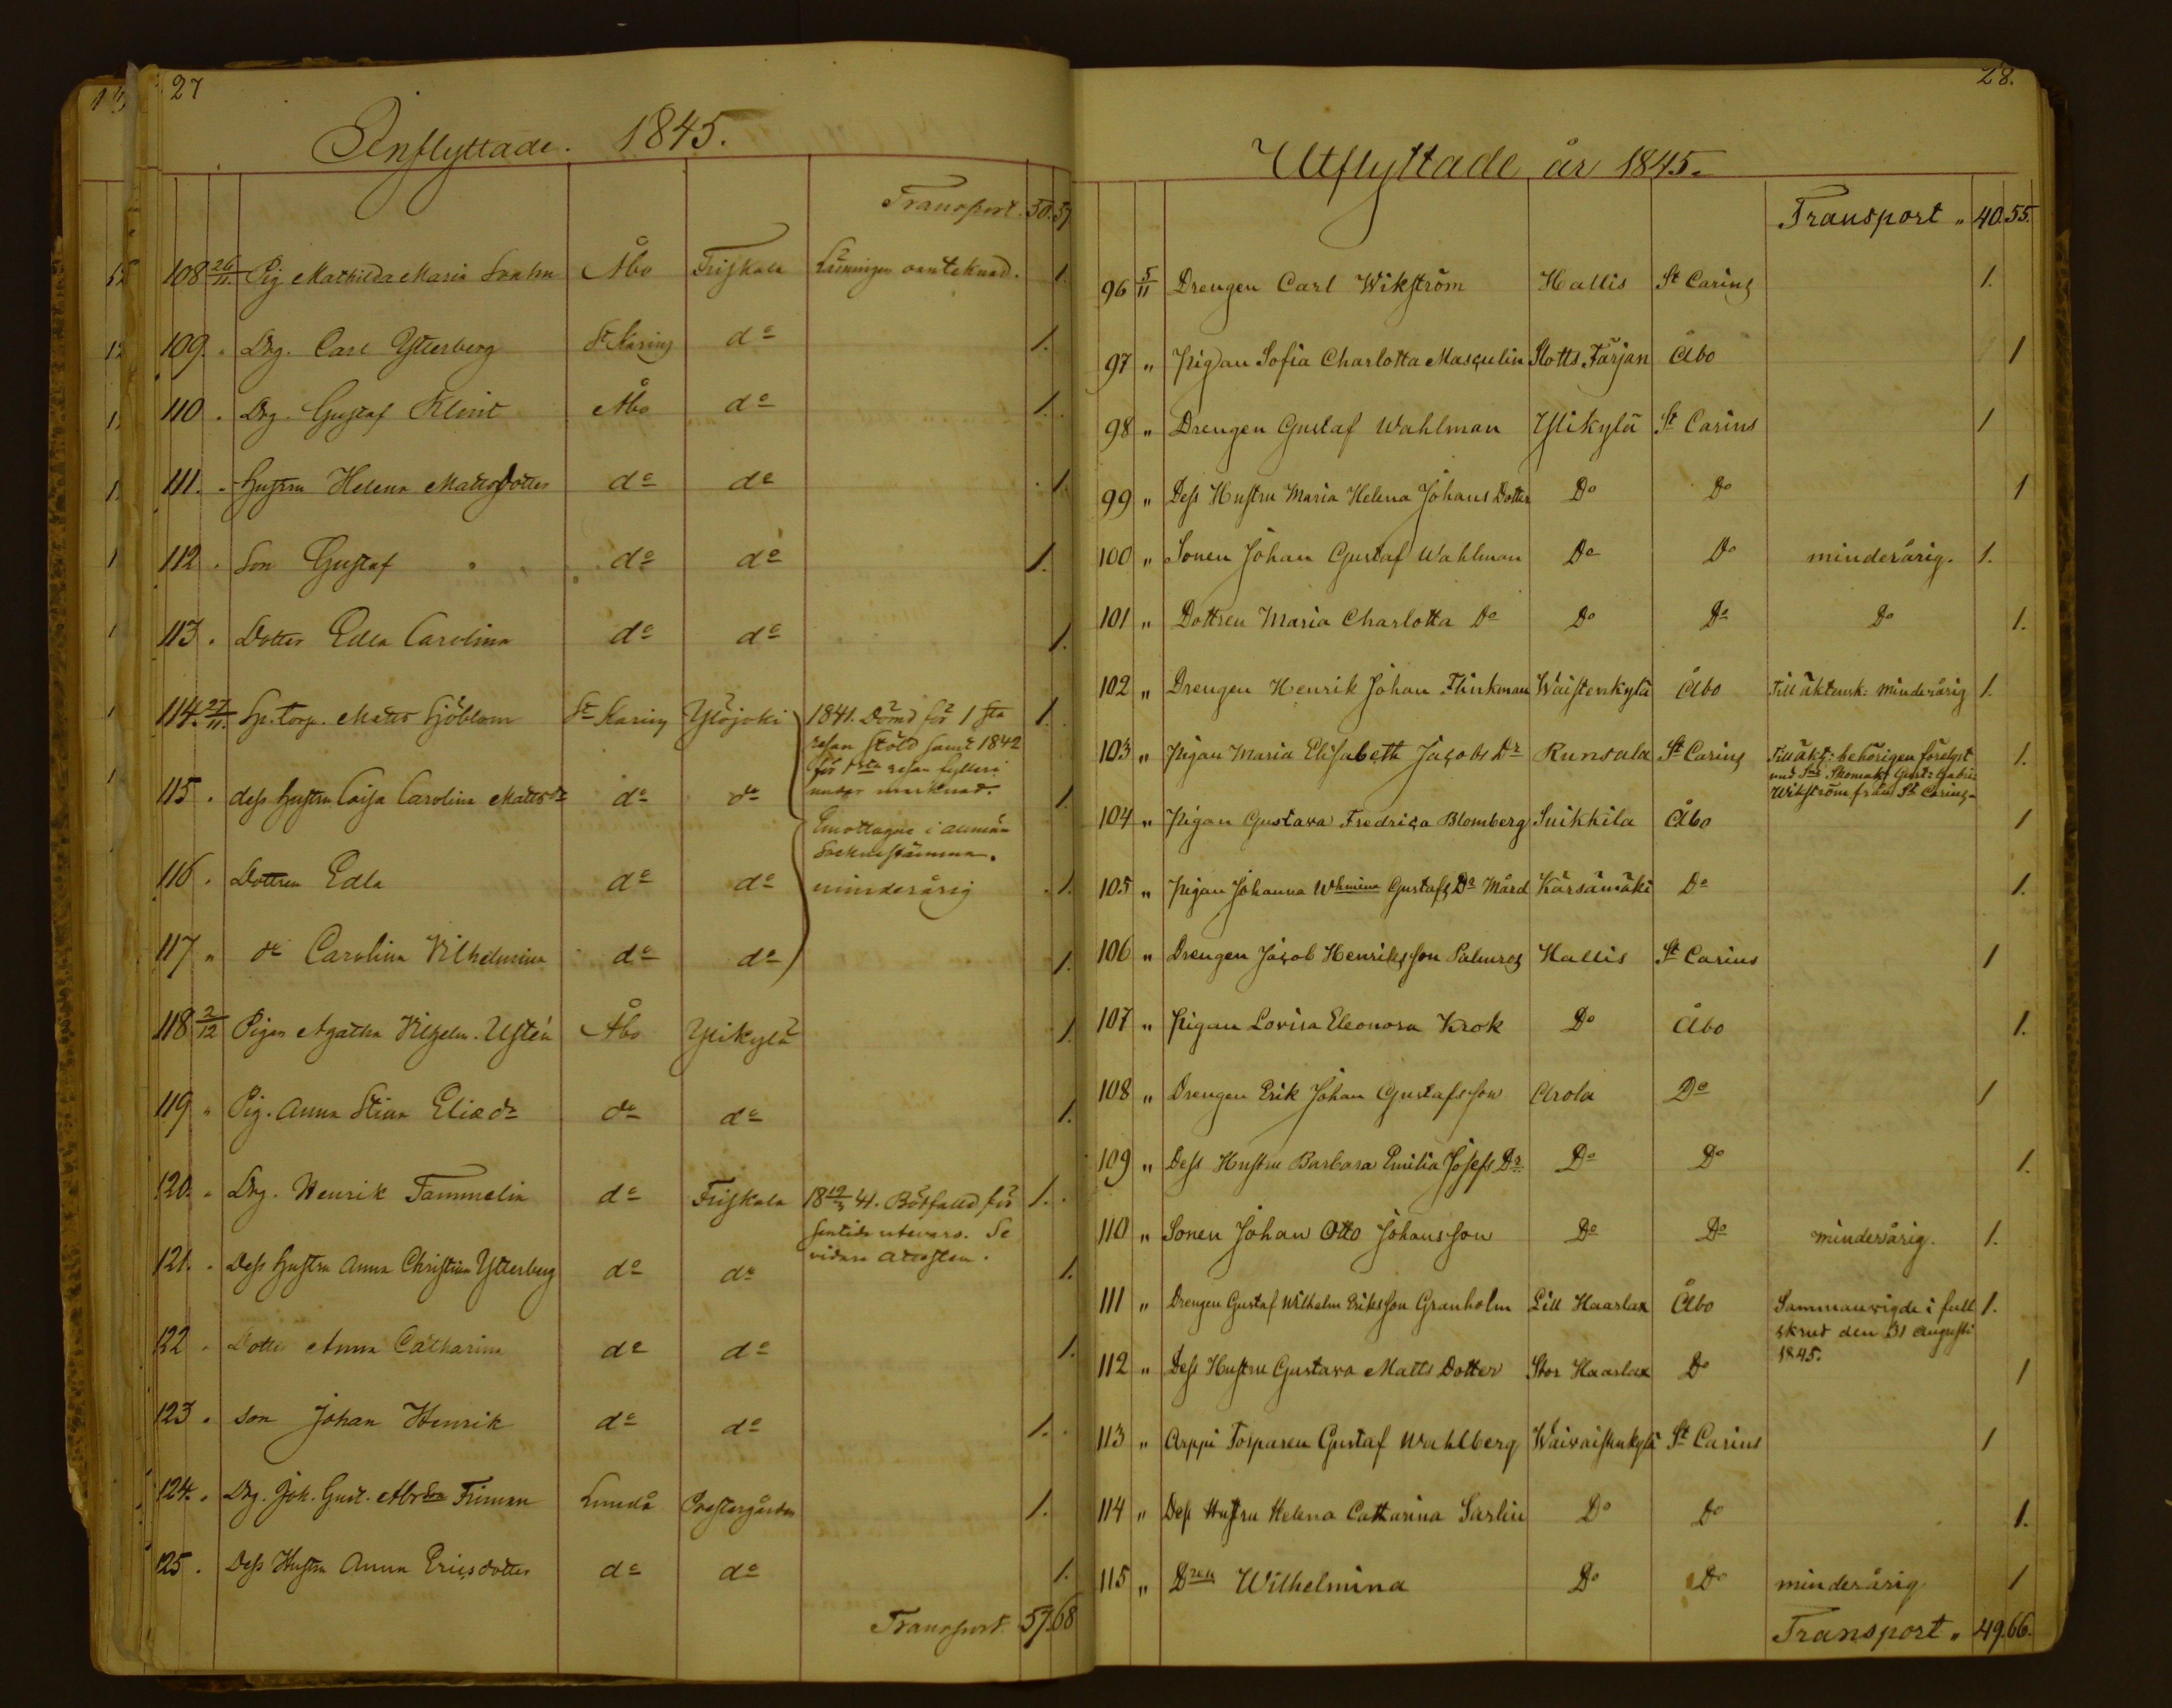 27
Inflyttade. 1845.
Transport. 50. 57
108 26/11. Pig Mathilda Maria Svahn Åbo Friskala Läsningen oanteknad. 1.
109. " Drg. Carl Ytterberg St Karins do 1.
110 " Drg. Gustaf Klint Åbo do 1.
111. " Hustru Helena Mattsdotter do do 1.
112 " Son Gustaf " do do 1.
113. " Dotter Edla Carolina do do 1.
114. 27/11. Matts Sjöblom St Karins Ylöjoki 1841. Dömd för 1sta 1.
resan stöld samt 1842
för 1sta resan fylleri
under marknad.
115. " dess hustru Caisa Carolina Mattsdr do do 1.
Emottagne i allmän
Socknestämma.
116. " Dottren Edla do do minderårig 1.
117 " do Carolina Vilhelmina do do 1.
118 2/12 Pigan Agatha Vilhelm. Ustén Åbo Ylikylä 1.
119 " Pig. Anna Stina Eliædr do do 1.
120. " Drg. Henrik Tammelin do Friskala 18 19/3 41. Bötfälld för 1.
utevaro. Se
vidare attesten.
121. " Dess hustru Anna Christina Ytterberg do do 1.
122 " Dotter Anna Catharina do do 1.
123 " Son Johan Henrik do do 1.
124. " Drg. Joh. Gust. Friman Lundå Prestergården 1.
125. " Dess Hustru Anna Ericsdotter do do 1.
Transport. 57. 68
28.
Utflyttade år 1845.
Transport " 40. 55.
96 5/11 Drengen Carl Wikström Hallis St Carins 1.
97 " Pigan Sofia Charlotta Masculin Slotts Färjan Åbo 1
98 " Drengen Gustaf Wahlman Ylikylä St Carins 1
99 " Dess Hustru Maria Helena Johans Dotter Do Do 1
100 " Sonen Johan Gustaf Wahlman Do Do minderårig. 1.
101 " Dottren Maria Charlotta Do Do Do Do 1.
102 " Drengen Henrik Johan Flinkman Waistenkylä Åbo Till äktensk: minderårig 1.
103 " Pigan Maria Elisabeth Jacobs Dr Runsala St Carins Till äkt: behörigen förelyst 1.
med Skomak: Gust: Gabr:
Wikström från St Carins.
104 " Pigan Gustava Fredrica Blomberg Suikkila Åbo 1
105 " Pigan Johanna Whmina Gustafs Dr Mård Kärsämäki Do 1.
106 " Drengen Jacob Henriksson Palmros Hallis St Carins 1
107 " Pigan Lovisa Eleonora Krok Do Åbo 1.
108 " Drengen Erik Johan Gustafsson Arola Do 1
109 " Dess Hustru Barbara Emilia Josefs Dr Do Do 1.
110 " Sonen Johan Otto Johansson Do Do minderårig. 1.
111 " Drengen Gustaf Wilhelm Eriksson Granholm Lill Haarlax Åbo Sammanvigde i full 1.
skrud den 31 Augusti
1845.
112 " Dess Hustru Gustava Matts Dotter Stor Haarlax Do 1
113 " Arppi Torparen Gustaf Wahlberg Waivaistenkylä St Carins 1
114 " Dess Hustru Helena Catharina Sarlin Do Do 1.
115 " Dren Wilhelmina Do Do minderårig 1
Transport " 49. 66.